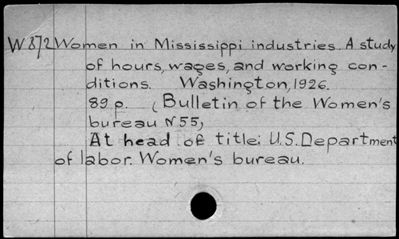 W872 Women in Mississippi industries. A study
of hours, wages, and working con-
ditions. Washington, 1926.
89 p. (Bulletin of the Women's
bureau N55)
At head of title: U.S. Department
of labor. Women's bureau.